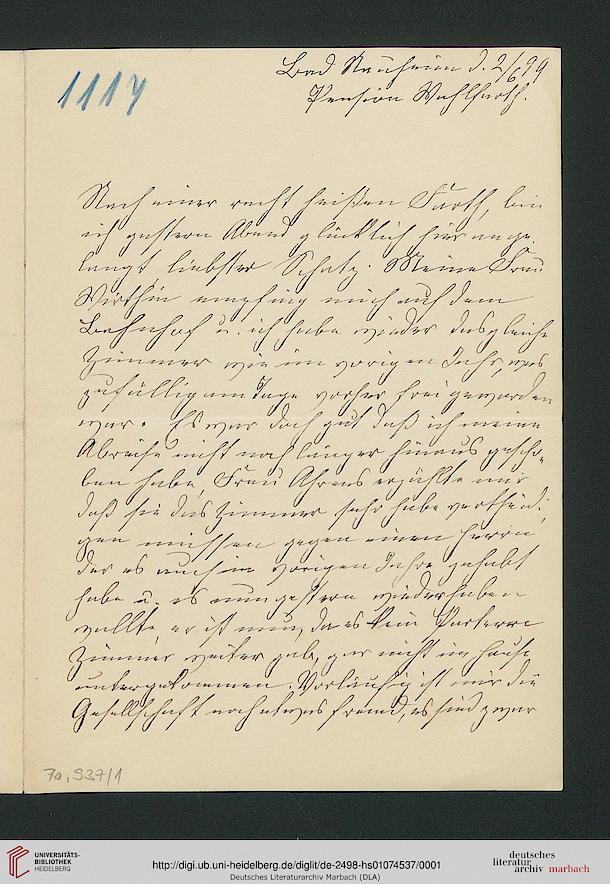 1114
Bad Nauheim d. 2/6 99
Pension Wohlfarth.
Nach einer recht heißen Farth, bin
ich gestern Abend glücklich hier ange
langt liebster Schatz. Meine Frau
Wirthin empfing mich auf dem
Bahnhof u. ich habe wieder das gleiche
Zimmer wie im vorigen Jahr, was
zufällig am Tage vorher frei geworden
war. Es war doch gut daß ich meine
Abreise nicht noch länger hinaus gescho-
ben habe, Frau Ahrens erzählte mir
daß sie das Zimmer sehr habe vertheidi
gen müssen gegen einen Herrn,
der es auch im vorigen Jahre gehabt
habe u. es nun gestern wiederhaben
wollte, er ist nun, da es kein Parterre
Zimmer weiter gab, gar nicht im Hause
untergekommen. Vorläufig ist mir die
Gesellschaft noch etwas fremd, es sind zwar
70.937/1
UNIVERSITÄTS-
BIBLIOTHEK
HEIDELBERG
http://digi.ub.uni-heidelberg.de/diglit/de-2498-hs01074537/0001
Deutsches Literaturarchiv Marbach (DLA)
deutsches
literatur
archiv marbach